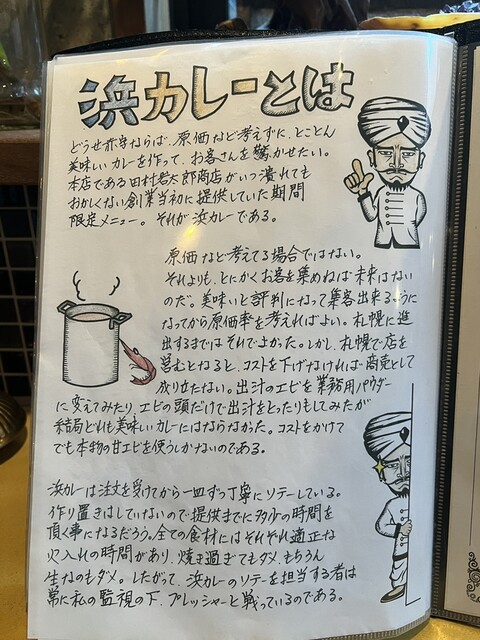 浜カレーとは
どうせ赤字ならば、原価など考えずに、とことん
美味しいカレーを作って、お客さんを驚かせたい。
本店である田村岩太郎商店がいつ潰れても
おかしくない創業当初に提供していた期間
限定メニュー。それが浜カレーである。
原価など考えてる場合ではない。
それよりも、とにかくお客を集めねば未来はない
のだ。美味いと評判になって集客出来るように
なってから原価率を考えればよい。札幌に進
出するまではそれで良かった。しかし、札幌で店を
営むとなると、コストを下げなければ商売として
成り立たない。出汁のエビを業務用パウダー
に変えてみたり、エビの頭だけで出汁をとったりもしてみたが
結局どれも美味しいカレーにはならなかった。コストをかけて
でも本物の甘エビを使うしかないのである。
浜カレーは注文を受けてから一皿ずつ丁寧にソテーしている。
作り置きはしていないので提供までに多少の時間を
頂く事になるだろう。全ての食材にはそれぞれ適正な
火入れの時間があり、焼き過ぎてもダメ、もちろん
生なのもダメ。したがって、浜カレーのソテーを担当する者は
常に私の監視の下、プレッシャーと戦っているのである。